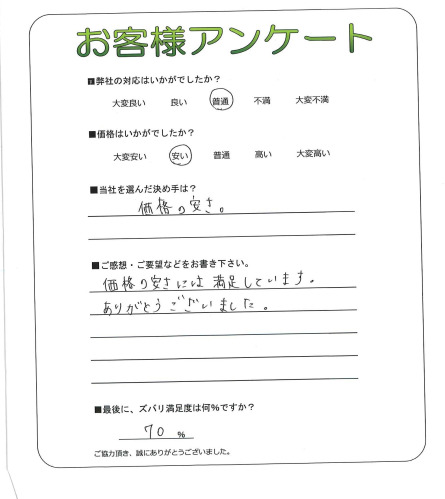 お客様アンケート
■弊社の対応はいかがでしたか?
大変良い 良い 普通 不満 大変不満
■価格はいかがでしたか?
大変安い 安い 普通 高い 大変高い
■当社を選んだ決め手は?
価格の安さ。
■ご感想・ご要望などをお書き下さい。
価格の安さには満足しています。
ありがとうございました。
■最後に、ズバリ満足度は何%ですか?
70 %
ご協力頂き、誠にありがとうございました。